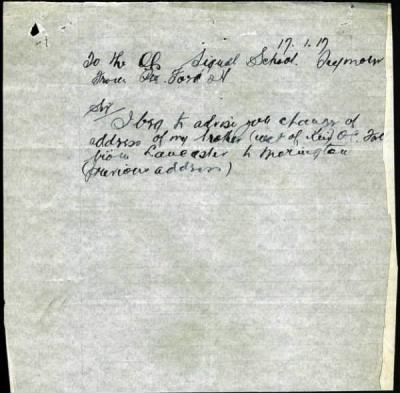 17.1.17
To the OC Signal School. Seymour
From Pte. Ford H
Sir/
I beg to advise you change of
address of my brother (next of Kin)
from Lancaster to Mornington
(previous address)